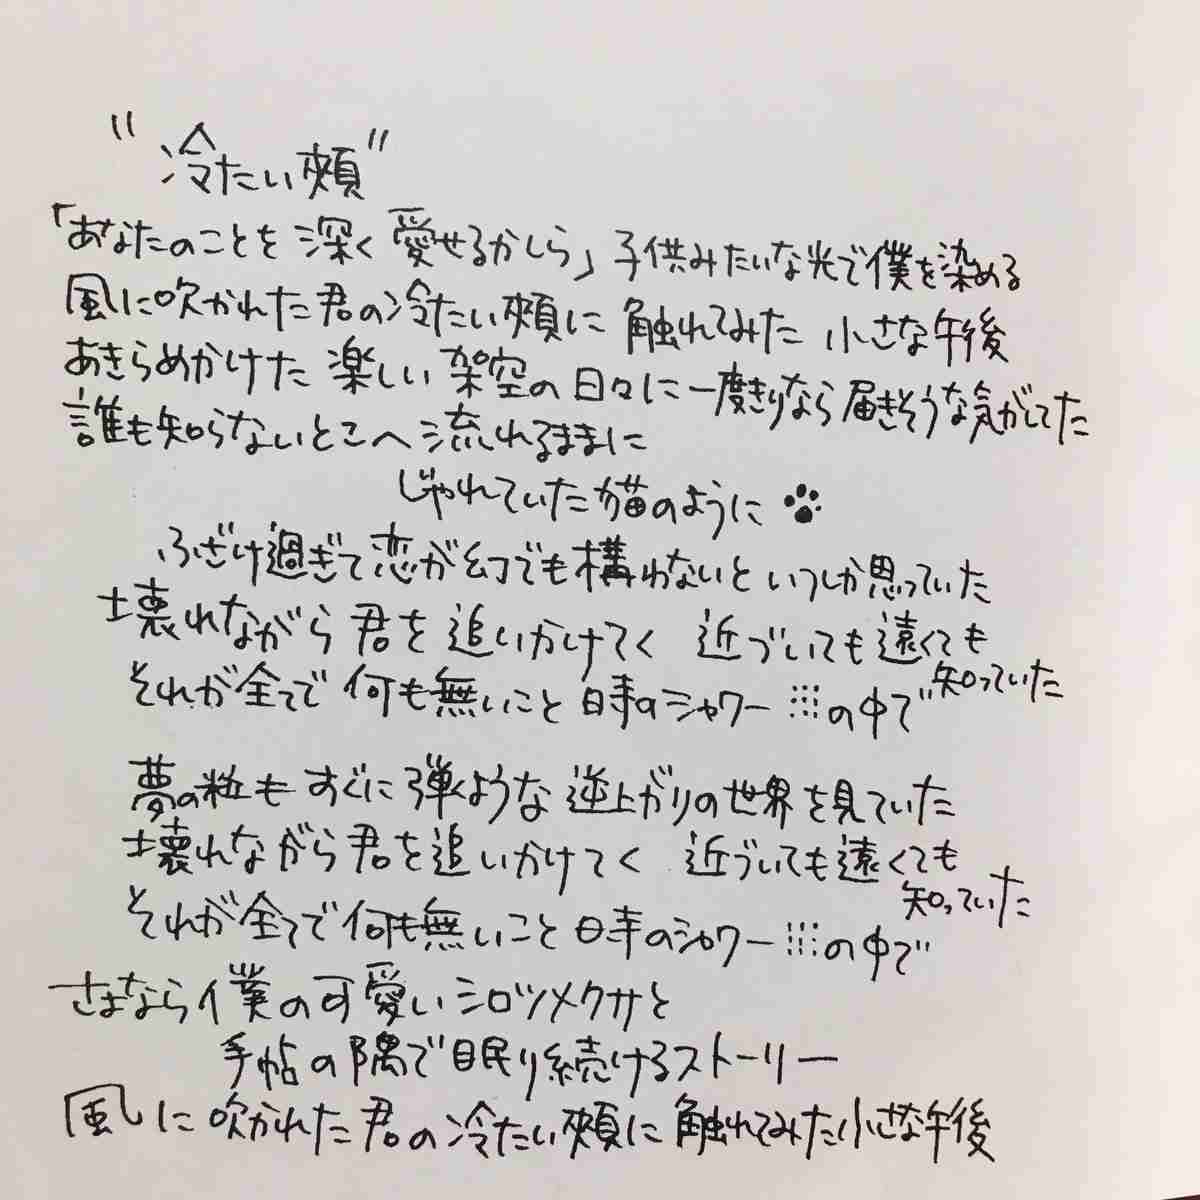 "冷たい頬"
「あなたのことを深く愛せるかしら」子供みたいな光で僕を染める
風に吹かれた君の冷たい頬に触れてみた 小さな午後
あきらめかけた楽しい架空の日々に一度きりなら届きそうな気がしてた
誰も知らないとこへ流れるままに
じゃれていた猫のように
ふざけ過ぎて恋が幻でも構わないといつしか思っていた
壊れながら君を追いかけてく 近づいても遠くても
知っていた
それが全てで何も無いこと時のシャワーの中で
夢の粒もすぐに弾くような逆上がりの世界を見ていた
壊れながら君を追いかけてく 近づいても遠くても
知っていた
それが全てで何も無いこと時のシャワーの中で
さよなら僕の可愛いシロツメクサと
手帖の隅で眠り続けるストーリー
風に吹かれた君の冷たい頬に触れてみた小さな午後